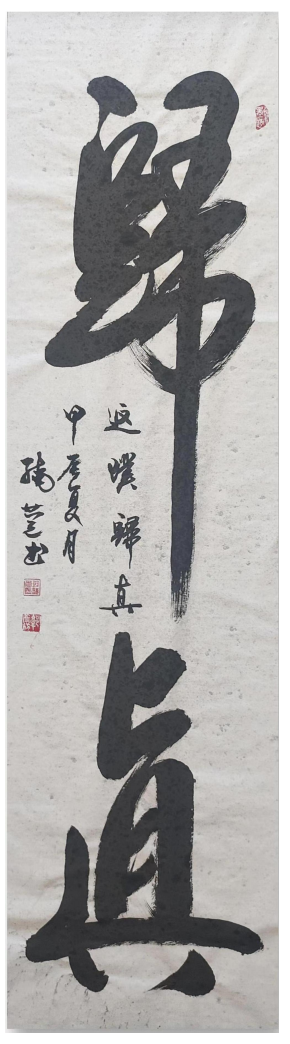 歸真
返璞歸真
甲辰夏月